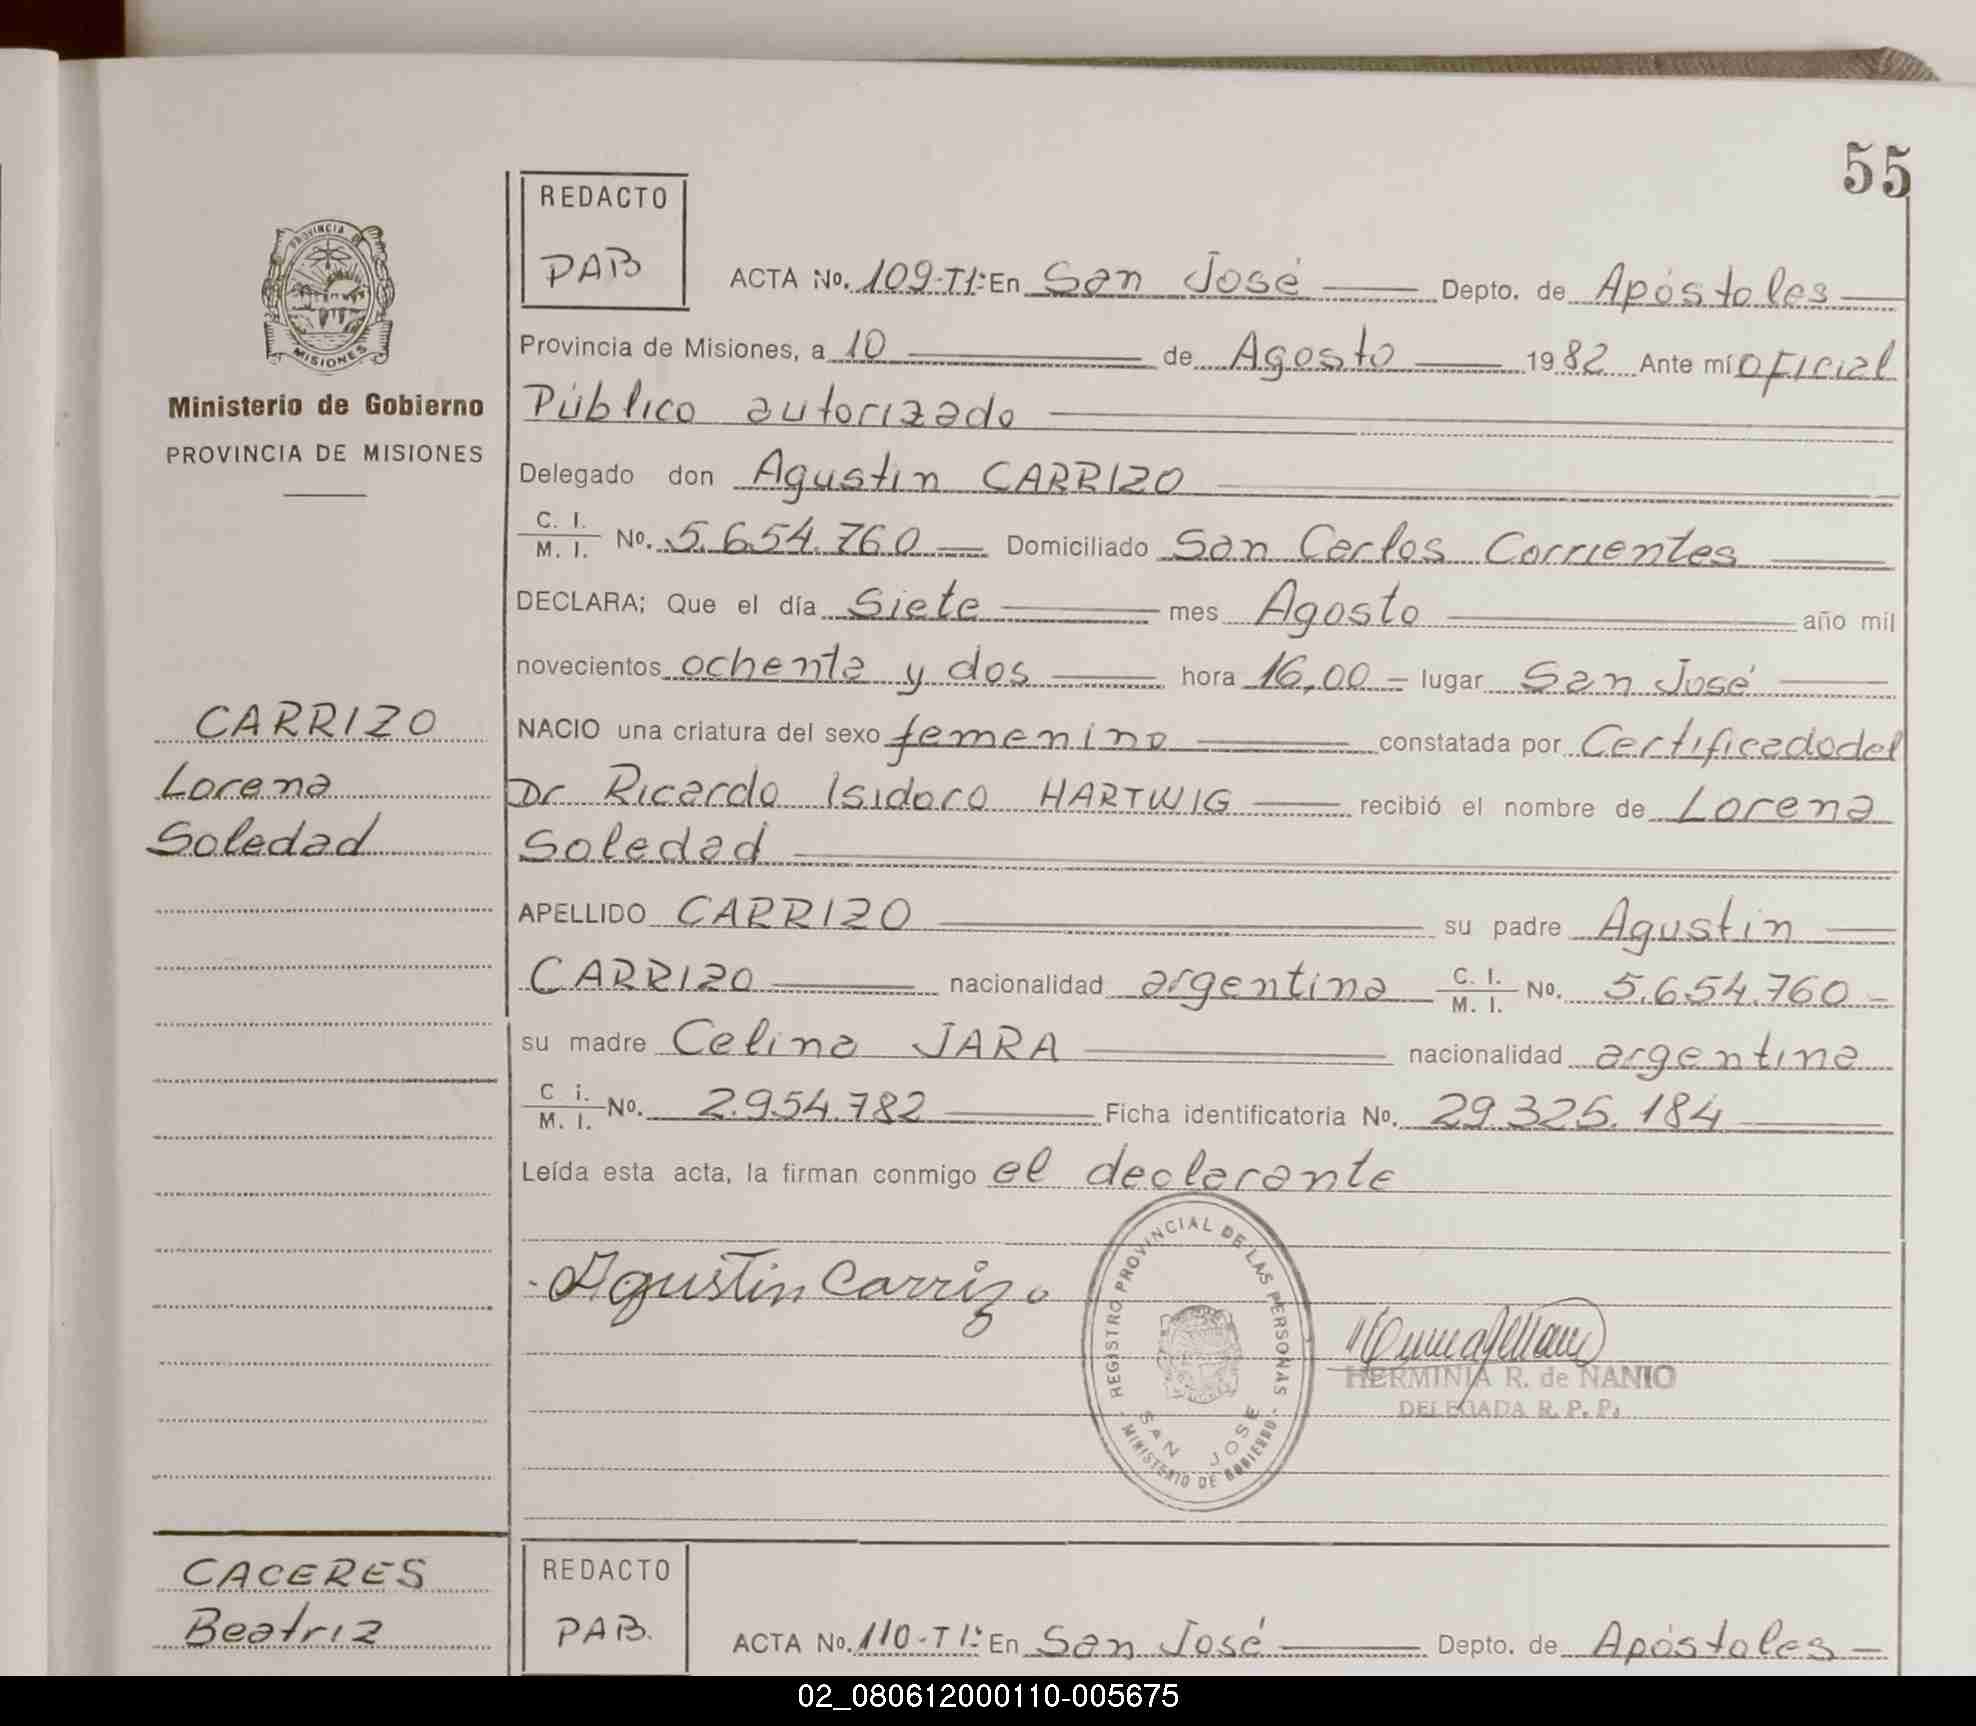 55
REDACTO
PAB
PROVINCIA DE
MISIONES
Ministerio de Gobierno
PROVINCIA DE MISIONES
ACTA No. 109-T1: En San José Depto. de Apóstoles
Provincia de Misiones, a 10 de Agosto 1982 Ante mí oficial
Público autorizado
Delegado don Agustin CARRIZO
C. I. / M. I. No. 5.654.760 Domiciliado San Carlos Corrientes
DECLARA; Que el día Siete mes Agosto año mil
novecientos ochenta y dos hora 16,00 lugar San José
CARRIZO
Lorena
Soledad
NACIO una criatura del sexo femenino constatada por Certificado del
Dr Ricardo Isidoro HARTWIG recibió el nombre de Lorena
Soledad
APELLIDO CARRIZO su padre Agustin
CARRIZO nacionalidad argentina C. I. / M. I. No. 5.654.760
su madre Celina JARA nacionalidad argentina
C i. / M. I. No. 2.954.782 Ficha identificatoria No. 29.325.184
Leída esta acta, la firman conmigo el declarante
Agustin Carrizo
REGISTRO PROVINCIAL DE LAS PERSONAS
SAN JOSE
MINISTERIO DE GOBIERNO
HERMINIA R. de NANIO
DELEGADA R. P. P.
CACERES
Beatriz
REDACTO
PAB.
ACTA No. 110-T1: En San José Depto. de Apóstoles
02_080612000110-005675